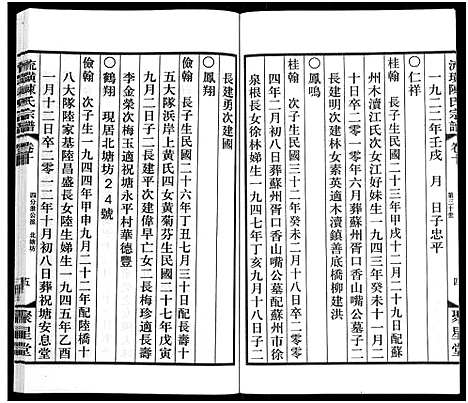 流璜陳氏宗譜
第三十世
四
一九二二年壬戌 月 日子忠平
○仁祥
桂翰 長子生民國二十三年甲戌十二月十九日配蘇
州木瀆江氏次女江好妹生一九四三年癸未十一月
二十日卒二零一零年十月葬蘇州胥口香山嘴公墓子二
長建明次建林女素英適木瀆楓橋柳建洪
○鳳鳴
桂翰 次子生民國三十二年癸未二月初十日卒二零零
四年二月初三日葬蘇州胥口香山嘴公墓配蘇州市徐
泉根長女徐林娣生一九四七年丁亥九月十八日子二
長建勇次建國
○鳳翔
儉翰 長子生民國二十六年丁丑七月三十日配長壽
五大隊浜岸上黃氏四女黃菊芬生民國二十七年戊寅
九月二日子二長建平次建偉早亡女二長梅珍適長壽
李金榮次梅玉適祝塘永平村華德豐
○鶴翔 現居北塘坊24號
儉翰 次子生一九四四年甲申九月二十二年配陸橋十
八大隊陸家基陸昌盛長女陸生娣生一九四五年乙酉
一月十二日卒二零一二年十月初八日葬祝塘安息堂
流璜陳氏宗譜
卷十
四分港公派 北塘坊
五
聚星堂